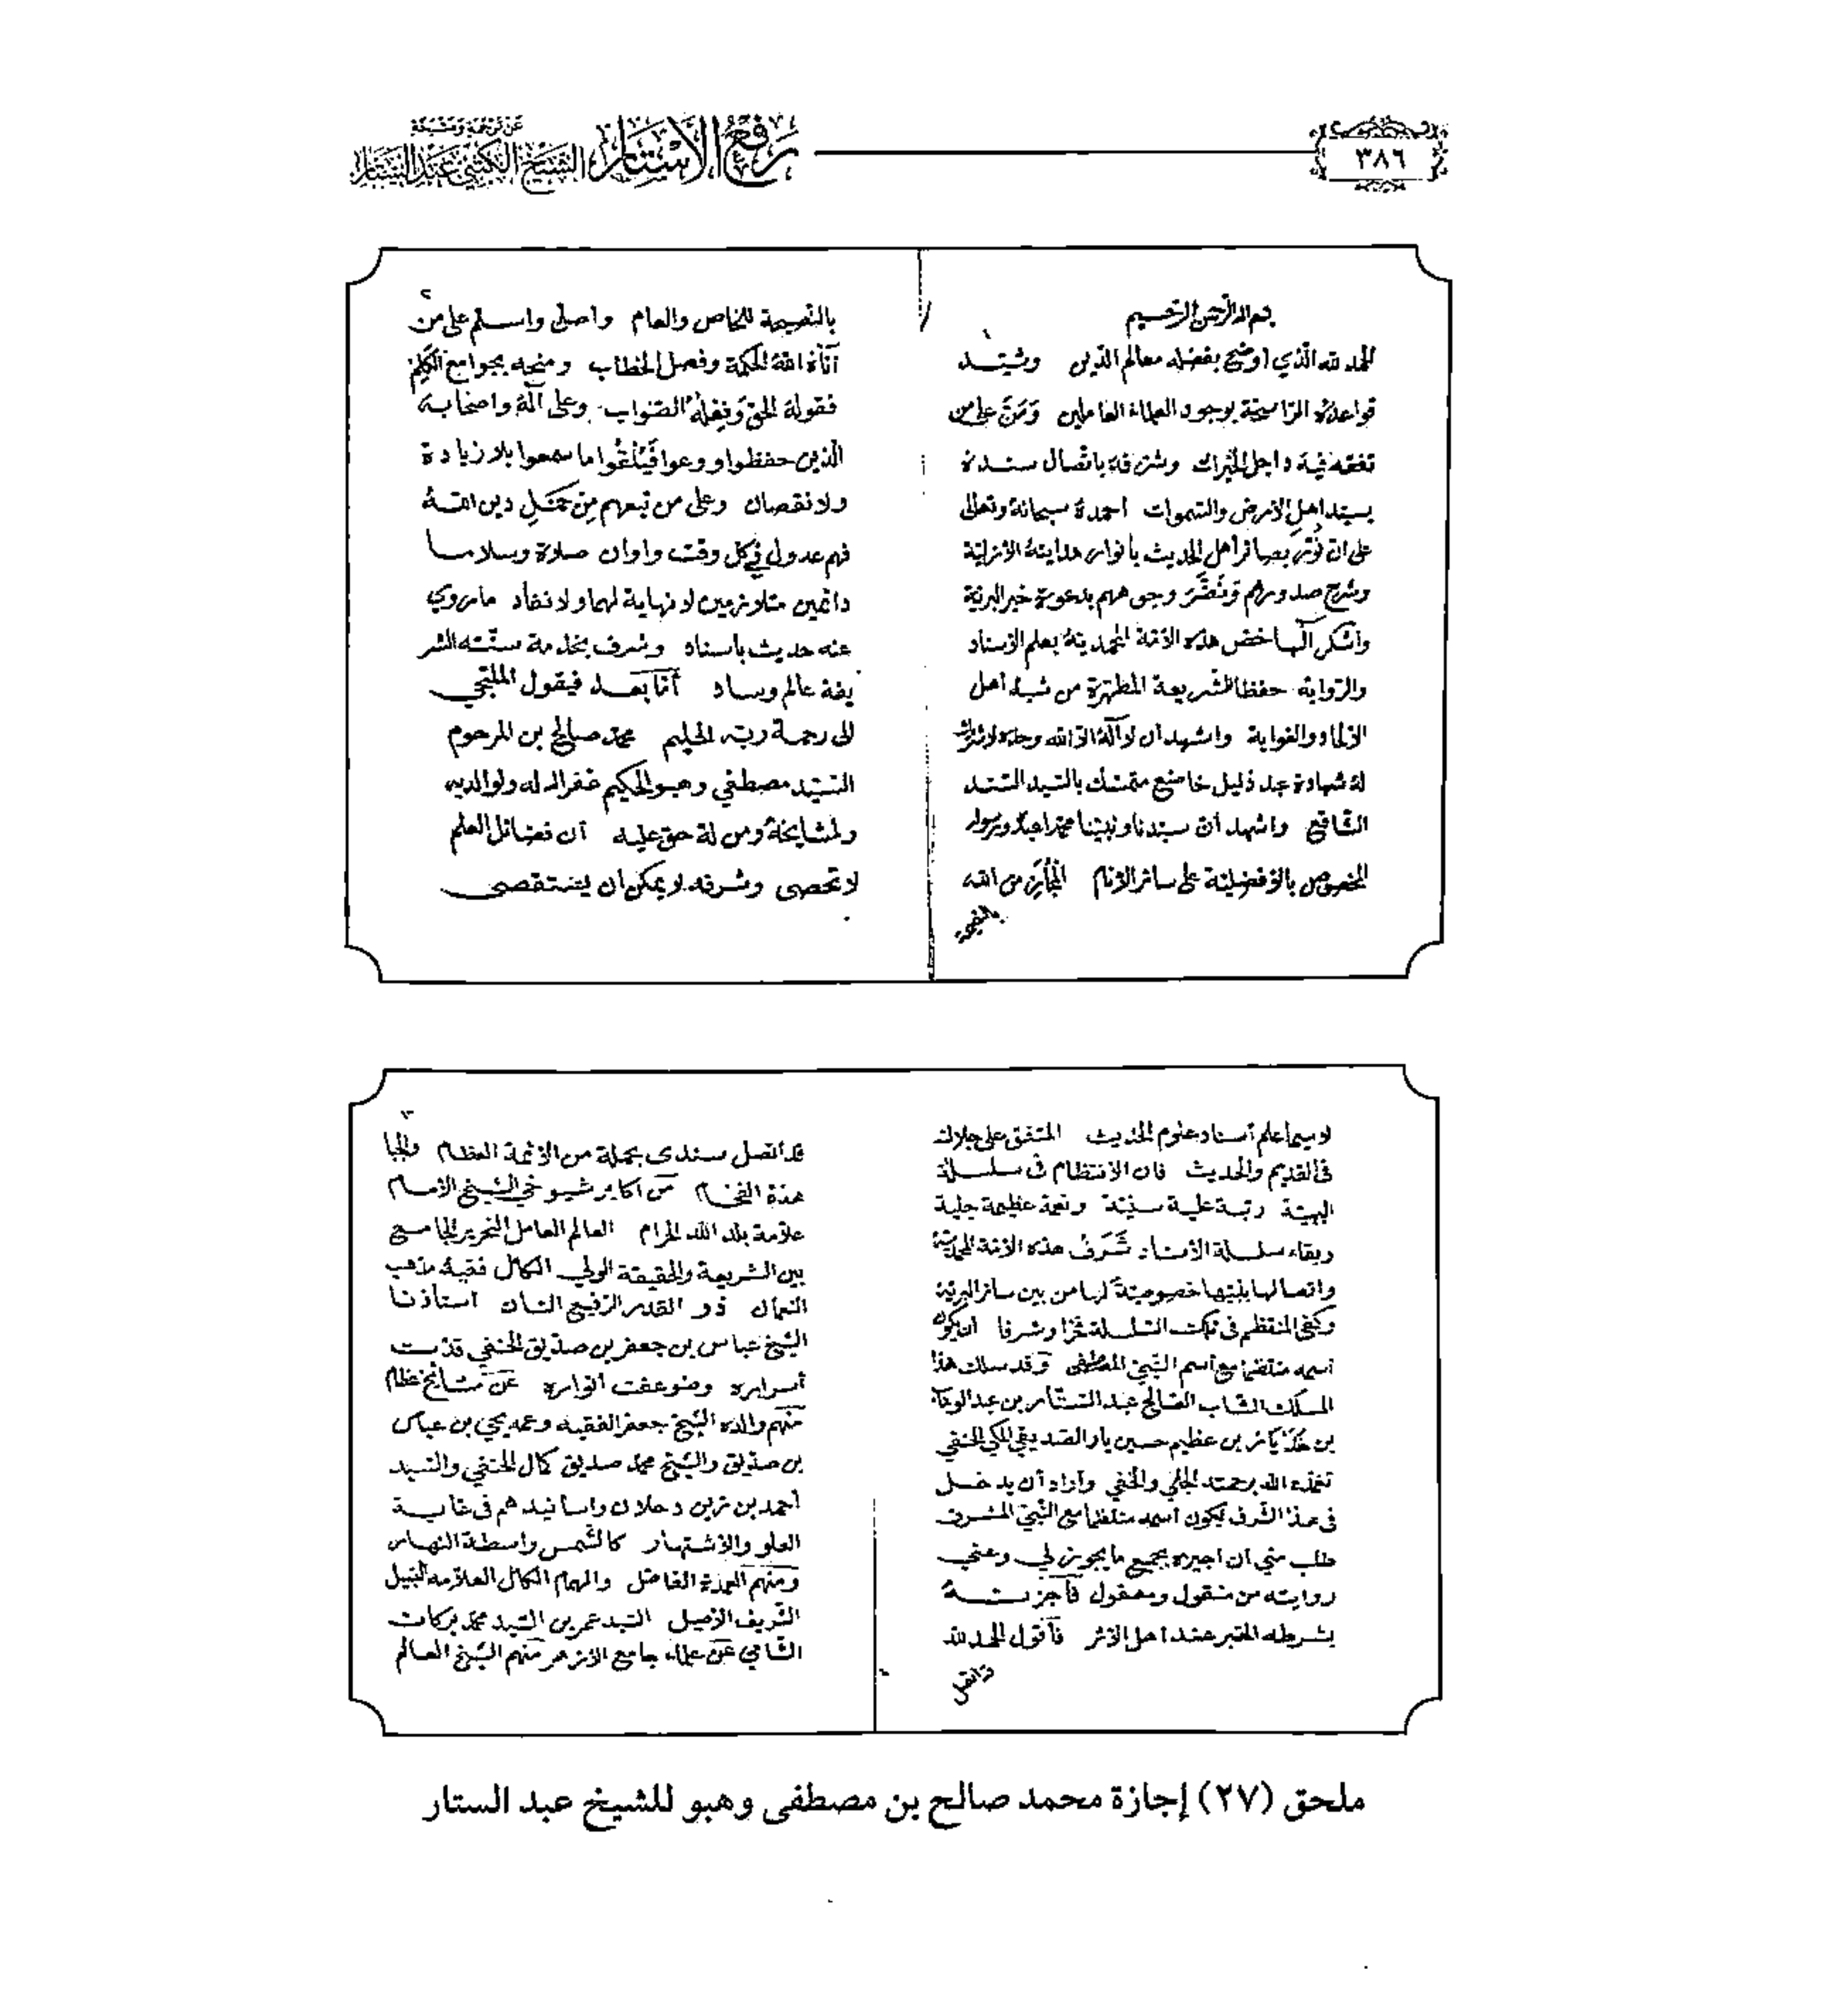 ٣٨٦
رفع الأستار عن ترجمة ومشيخة الشيخ الكتبي عبد الستار
بسم الله الرحمن الرحيم
الحمد لله الذي اوضح بفضله معالم الدين وشيــد
قواعده الراسخة بوجود العلماء العاملين وَمَنَّ على من
تفقه فيه داجل الخيرات وشرفه باتصال سنــده
بسيد اهل الارض والسموات احمده سبحانه وتعالى
على ان نوّر بصائر اهل الحديث بأنوار هدايته الازلية
وشرح صدورهم ونَضَّرَ وجوههم بدعوة خير البرية
واشكر الها خص هذه الأمة المحمدية بعلم الاسناد
والرواية حفظا للشريعة المطهرة من شبه اهل
الالحاد والغواية واشهد ان لا آله الا الله وحده لا شريك
له شهادة عبد ذليل خاضع متمسك بالسيد السند
الشافع واشهد ان سيدنا ونبينا محمدا عبده ورسوله
المخصوص بالافضلية على سائر الانام المجاز من الله
بالنصيحة
٢
بالنصيحة للخاص والعام واصلى واسـلم على من
آتاه الله الحكمة وفصل الخطاب ومنحه بجوامع الكلم
فقوله الحق وفعله الصواب وعلى آله واصحابه
الذين حفظوا ووعوا فبلغوا ما سمعوا بلا زيادة
ولا نقصان وعلى من تبعهم من حَمَلِ دين اللـه
فهم عدول في كل وقت واوان صلاة وسلامــا
دائمين متلازمين لا نهاية لهما ولا نفاد ما روي
عنه حديث باسناد وشرف بخدمة سنته الشر
يفة عالم وساد أما بعــد فيقول الملتجي
الى رحمة ربه الحليم محمد صالح بن المرحوم
السيد مصطفي وهبو الحكيم غفر الله له ولوالديه
ولمشايخه ومن له حق عليه ان فضائل العلم
لا تحصى وشرفه لا يمكن ان يستقصى
لا سيما علم أسناد علوم الحديث المتفق على جلالته
في القديم والحديث فان الانتظام في سلسلته
البهية رتبة علية سنية ونعمة عظيمة جلية
وبقاء سلسلة الأسناد شَرَفُ هذه الأمة المحمدية
واتصالها بنبيها خصوصية لها من بين سائر البرية
وكفى المنتظم في تلك السلسلة فخرا وشرفا ان يكون
اسمه منتظما مع أسم النبي المصطفى وقد سلك هذا
المسلك الشاب الصالح عبد الستار بن عبد الوهاب
بن خدا يار بن عظيم حسين يار الصديقي المكي الحنفي
تغمده الله برحمته الجلي والخفي وأراد أن يدخـل
في هذا الشرف ليكون أسمه منتظما مع النبي المشرف
طلب مني ان اجيزه بجميع ما يجوز لي وعني
روايته من منقول ومعقول فأجزتــه
بشرطه المعتبر عند اهل الاثر فأقول الحمد لله
قد اتصل
٣
قد أتصل سندى بجملة من الأئمة العظام والجها
بهذة الفخام من اكابر شيوخي الشيخ الامام
علامة بلد الله الحرام العالم العامل النحرير الجامع
بين الشريعة والحقيقة الولي الكامل فقيه مذهب
النعمان ذو القدر الرفيع الشان استاذنا
الشيخ عباس بن جعفر بن صديق الحنفي قدست
أسراره وضوعفت انواره عن مشايخ عظام
منهم والده الشيخ جعفر الفقيه وعمه يحيى بن عباس
بن صديق والشيخ محمد صديق كمال الحنفي والسيد
أحمد بن زين دحلان واسانيدهم في غايــة
العلو والاشتهار كالشمس واسطة النهار
ومنهم العمدة الفاضل والهمام الكامل العلامة النبيل
الشريف الاصيل السيد عمر بن السيد محمد بركات
الشامي عن علماء جامع الازهر منهم الشيخ العالم
ملحق (٢٧) إجازة محمد صالح بن مصطفى وهبو للشيخ عبد الستار